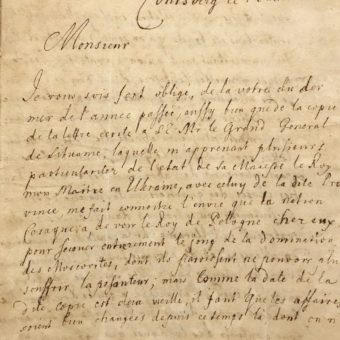 Monsieur
Je vous suis fort obligé, de la votre du der
nier de l'année passée, aussy bien que de la copie
de la lettre, ecrite a Mr le Grand General
de Lituanie, laquelle m'apprenant plusieurs
particularitez de l'etat de sa Majesté le Roy
mon Maitre en Ukraine, avec celuy de la dite Pro
vince, me fait connoitre l'envie que la nation
Cosaque a de voir le Roy de Pologne chez eux
pour secouer entierement le joug de la Domination
des Moscovites, dont ils paroissent ne pouvoir plus
souffrir la pesanteur; mais comme la date de la
dite copie est deja vieille, il faut que les affaires
soient bien changées depuis ce temps la dont on n